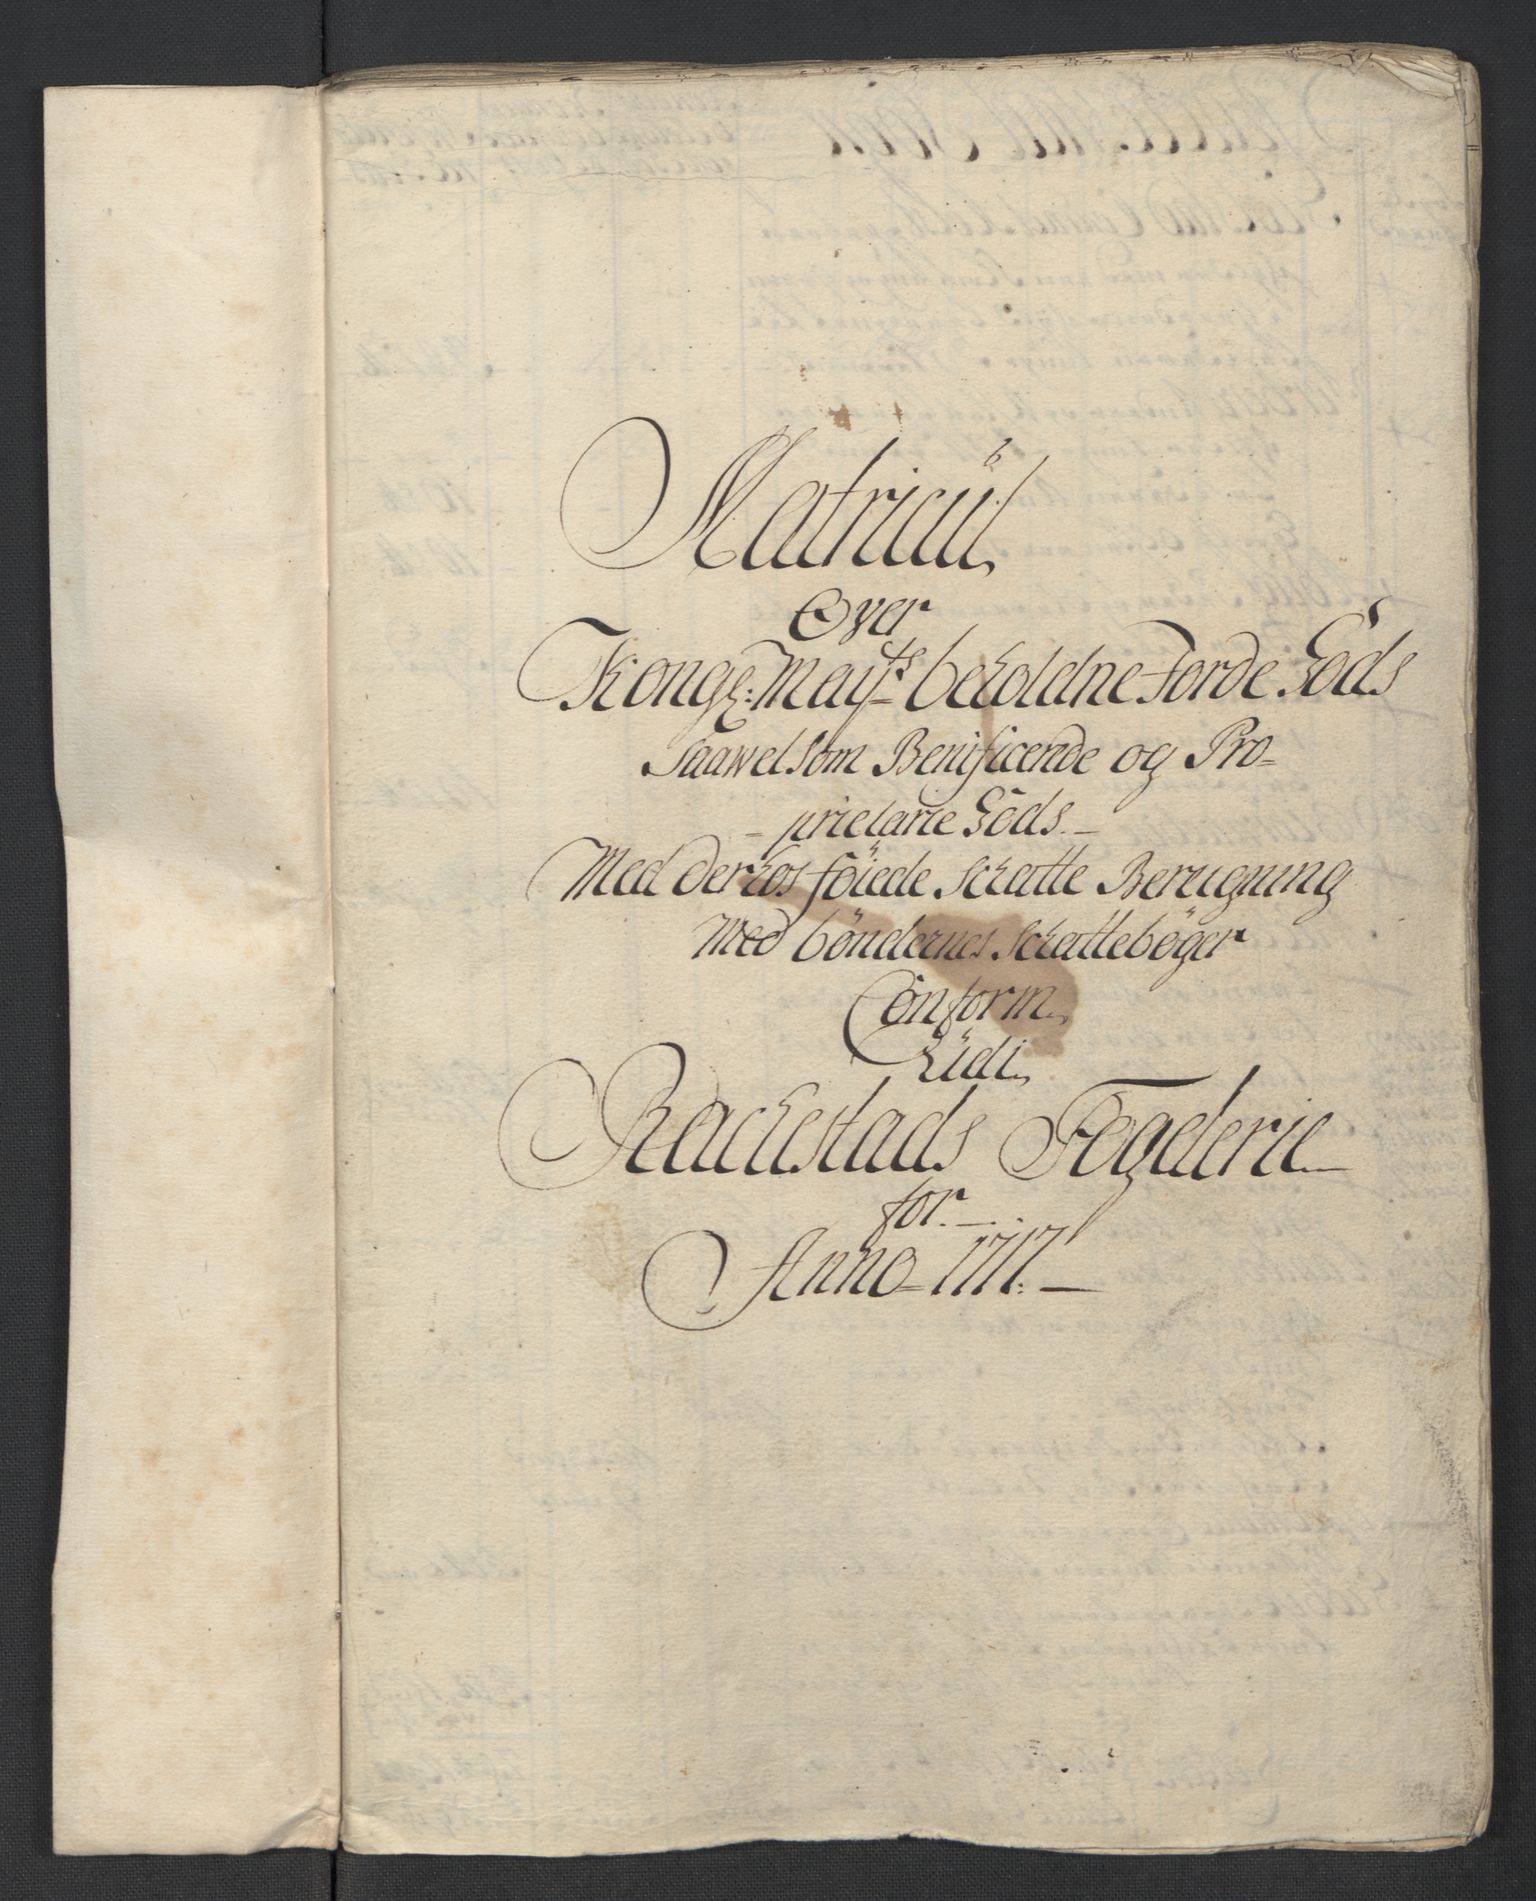 Matricul
Over
Kongl: Mayts beholdne Jorde Gods
Saawelsom Benificerede og Pro-
- prietarie Gods. -
Med derhos föiede Schatte Beregning
Med böndernes Schattebøger
Conform
Udi
Rackestads Fogederie
for
Anno 1717. -